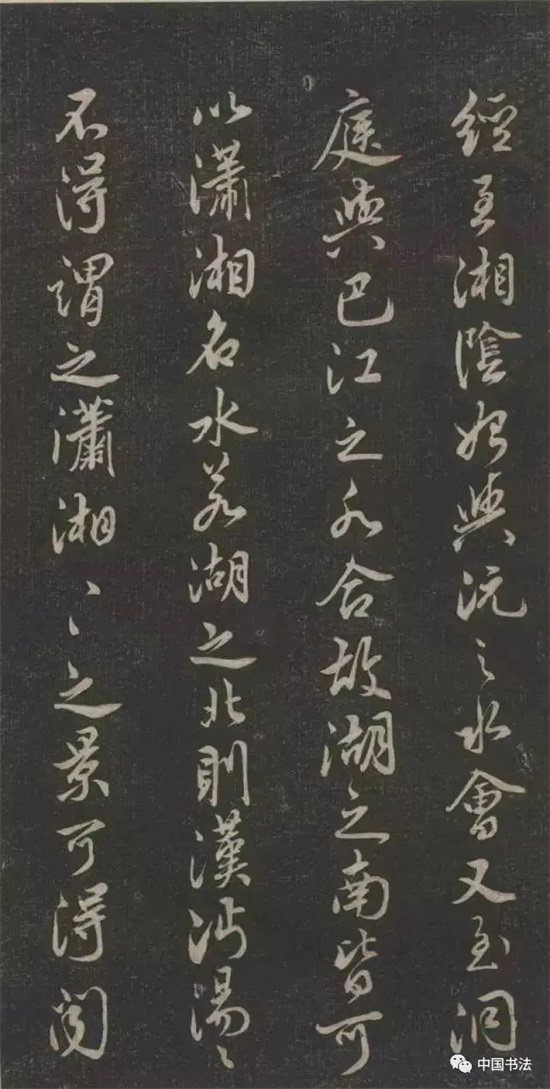 經至湘陰始與沅之水會又至洞
庭與巴江之水合故湖之南皆可
以瀟湘名水若湖之北則漢沔湯〻
不得謂之瀟湘〻〻之景可得聞
中国书法